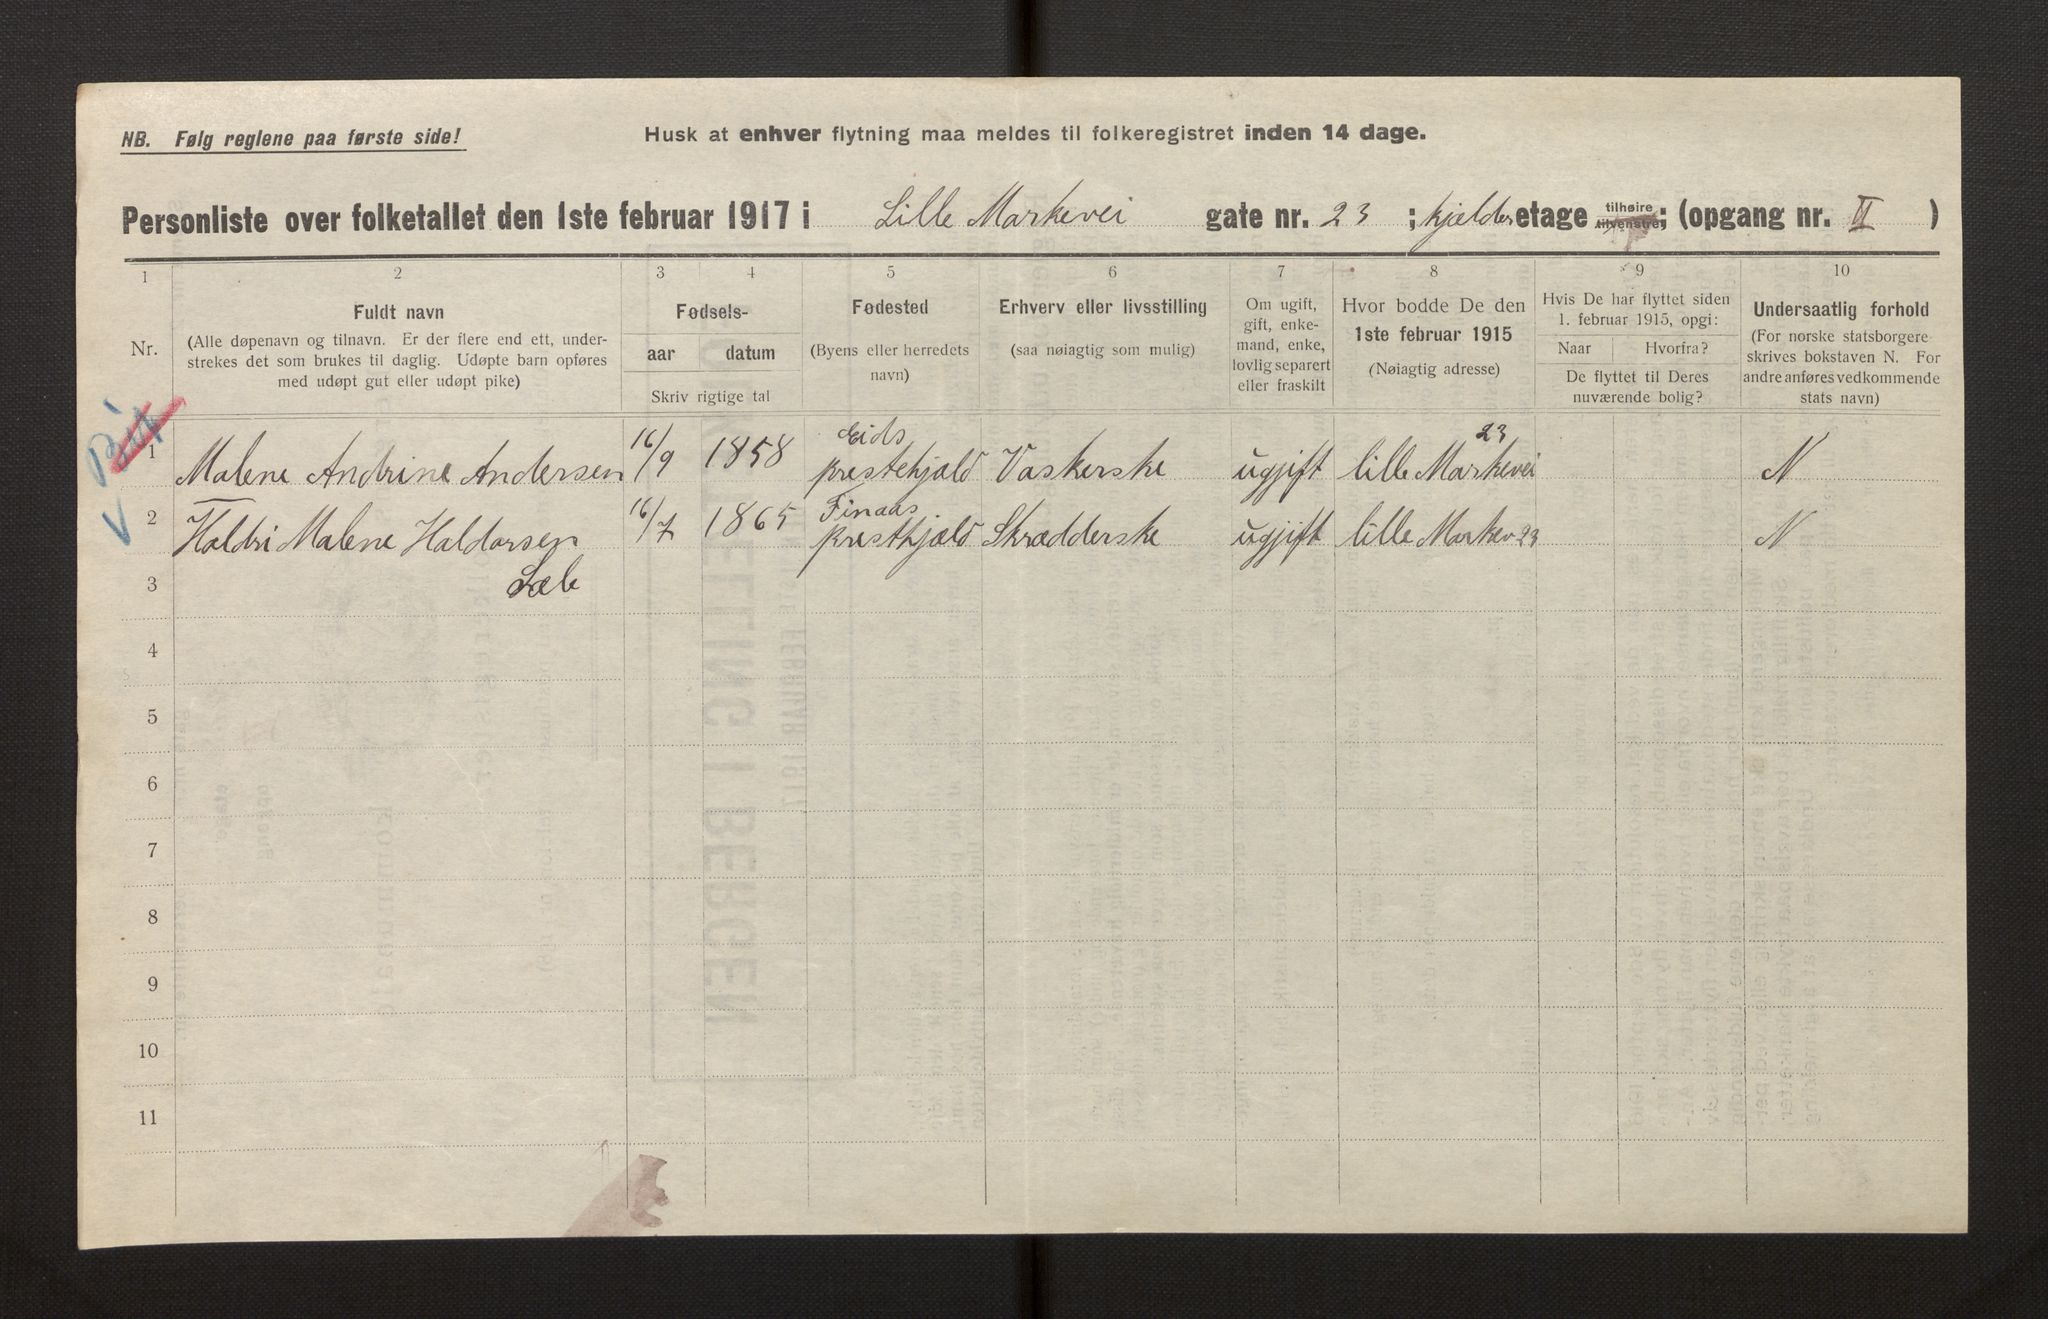 NB. Følg reglene paa første side!
Husk at enhver flytning maa meldes til folkeregistret inden 14 dage.
Personliste over folketallet den 1ste februar 1917 i Lille Markevei gate nr. 23 ; kjælder etage tilhøire tilvenstre ; (opgang nr. II )
1 2 3 4 5 6 7 8 9 10
Nr.
Fuldt navn
(Alle døpenavn og tilnavn. Er der flere end ett, under-
strekes det som brukes til daglig. Udøpte barn opføres
med udøpt gut eller udøpt pike)
Fødsels-
aar datum
Skriv rigtige tal
Fødested
(Byens eller herredets
navn)
Erhverv eller livsstilling
(saa nøiagtig som mulig)
Om ugift,
gift, enke-
mand, enke,
lovlig separert
eller fraskilt
Hvor bodde De den
1ste februar 1915
(Nøiagtig adresse)
Hvis De har flyttet siden
1. februar 1915, opgi:
Naar Hvorfra?
De flyttet til Deres
nuværende bolig?
Undersaatlig forhold
(For norske statsborgere
skrives bokstaven N. For
andre anføres vedkommende
stats navn)
1 Malene Andrine Andersen 16/9 1858 Eids prestehjæld Vaskerske ugjift lille Markevei 23 N
2 Haldri Malene Haldorsen 16/7 1865 Finaas presthjæld Skrædderske ugjift lille Markev 23 N
3 Sæle
4
5
6
7
8
9
10
11